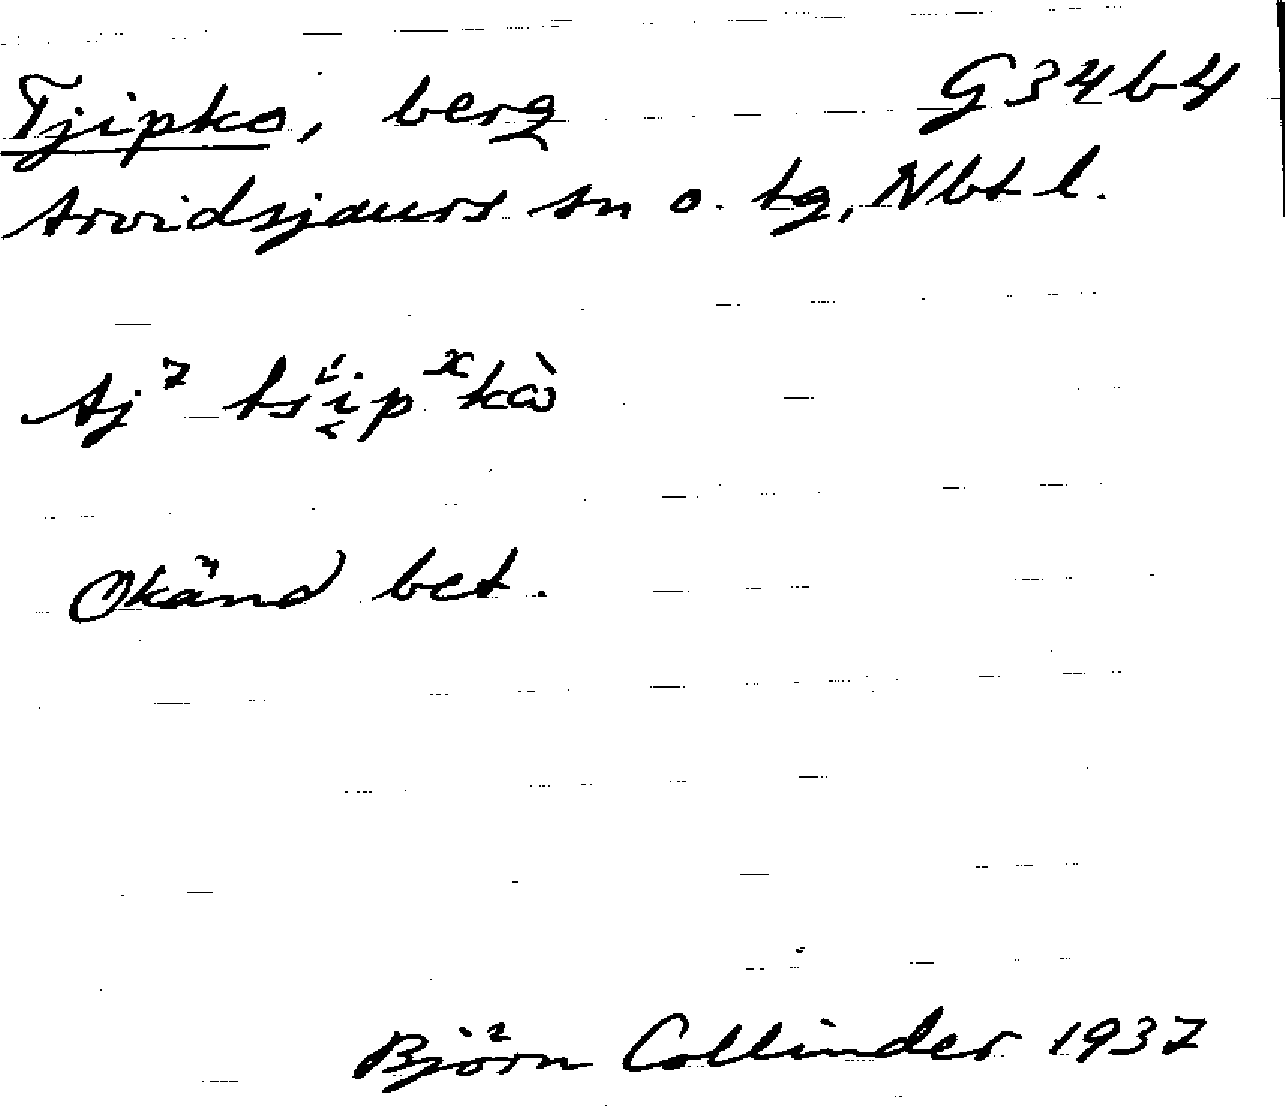 Tjipko, berg G34b4
Arvidsjaurs sn o. tg, Nbt l.
Aj⁷
Okänd bet.
Björn Collinder 1937